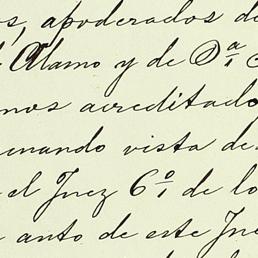 os, apoderados de
Alamo y de Dª
mos acreditado
enando vista de
el Juez 6º de lo
auto de este Jue